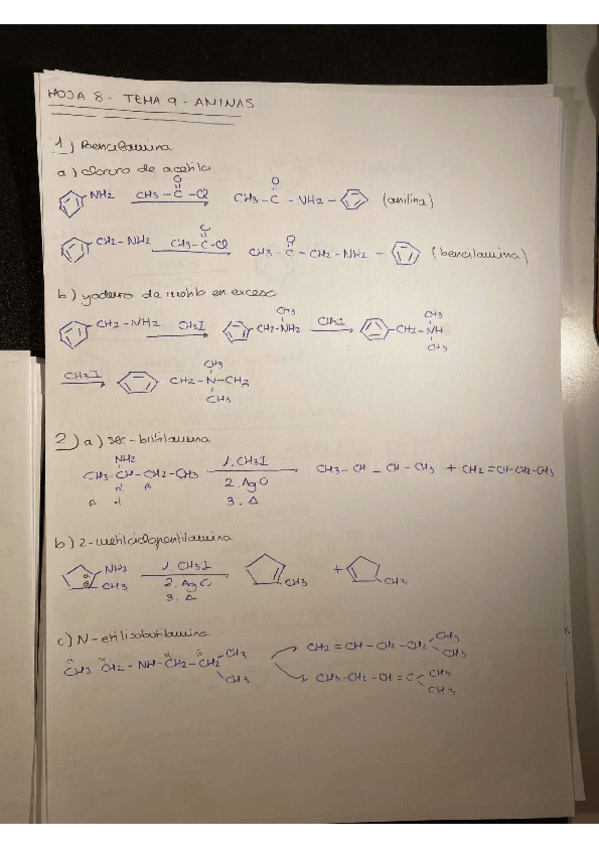 HOJA 8 - TEMA 9 - AMINAS
1) Bencilamina
a) cloruro de acetilo
NH2 CH3-C-Cl O CH3-C-NH2- O (anilina)
CH2-NH2 CH3-C-Cl O CH3-C-CH2-NH2- O (bencilamina)
b) yoduro de metilo en exceso
CH2-NH2 CH3I CH2-NH2 CH3 CH3I CH2-NH CH3 CH3
CH3I CH2-N-CH3 CH3 CH3
2) a) sec-butilamina
NH2
CH3-CH-CH2-CH3 1. CH3I 2. AgO 3. Δ CH3-CH=CH-CH3 + CH2=CH-CH2-CH3
β α β
b) 2-metilciclopentilamina
NH2 CH3 1. CH3I 2. AgO 3. Δ CH3 + CH3
c) N-etilisobutilamina
CH3 CH2-NH-CH2-CH2 CH3 CH3 CH2=CH-CH2-CH2 CH3 CH3
CH3-CH2-CH=C CH3 CH3